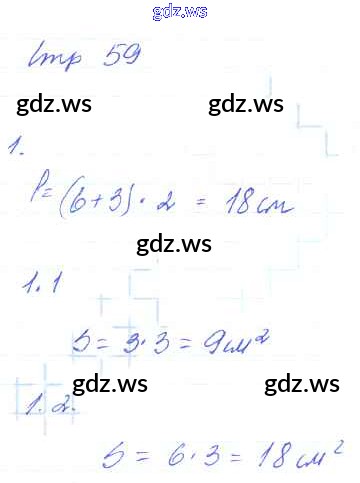 gdz.ws
Стр 59
gdz.ws gdz.ws
1.
P=(6+3)·2 = 18 см
gdz.ws
1.1
S = 3·3 = 9 см²
gdz.ws gdz.ws
1.2.
S = 6·3 = 18 см²